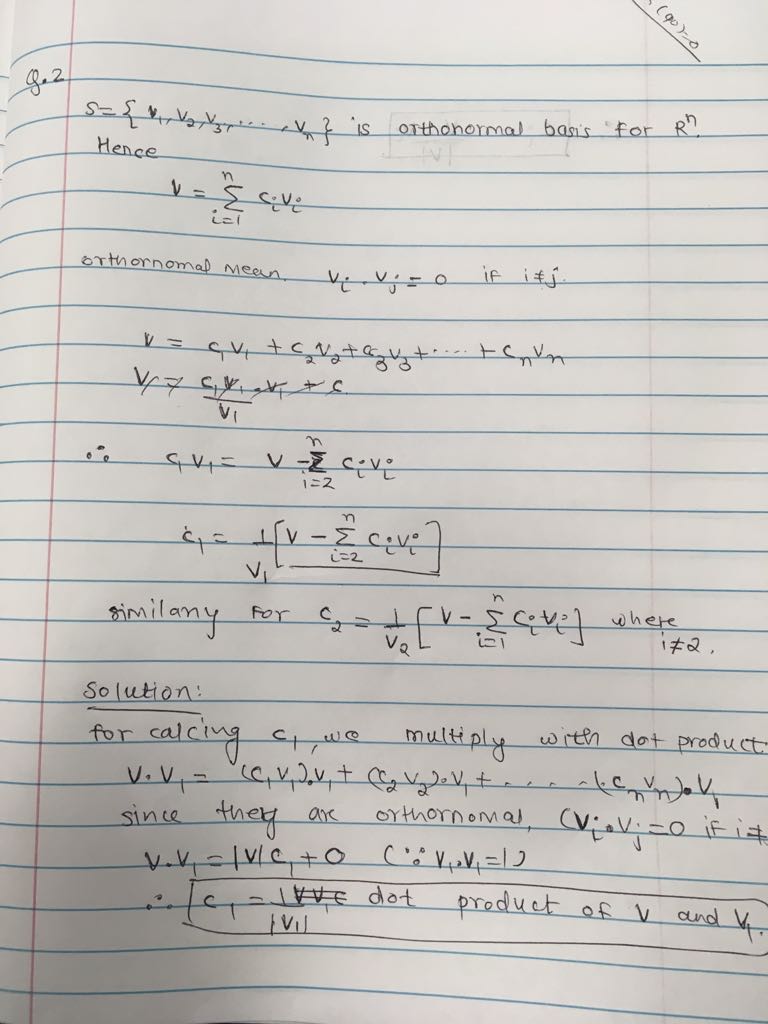 (90)=0
Q.2
S={ V₁, V₂, V₃, ...., Vₙ } is orthonormal basis for Rⁿ.
Hence
V = Σⁿᵢ₌₁ cᵢvᵢ
orthornomal mean. Vᵢ . Vⱼ = 0 if i≠j.
V = c₁V₁ + c₂V₂ + c₃V₃ + .... + cₙVₙ
∴ c₁V₁ = V - Σⁿᵢ₌₂ cᵢvᵢ
c₁ = 1/V₁ [V - Σⁿᵢ₌₂ cᵢvᵢ]
similany for c₂ = 1/V₂ [V - Σⁿᵢ₌₁ cᵢvᵢ] where
i≠2.
Solution:
for calcing c₁, we multiply with dot product.
V.V₁ = (c₁V₁).V₁ + (c₂V₂).V₁ + ...... (cₙVₙ).V₁
since they are orthornomal, (Vᵢ.Vⱼ=0 if i≠
V.V₁ = |V|c₁ + 0 (∵ V₁.V₁=1)
∴ c₁ = 1/|V₁| dot product of V and V₁.